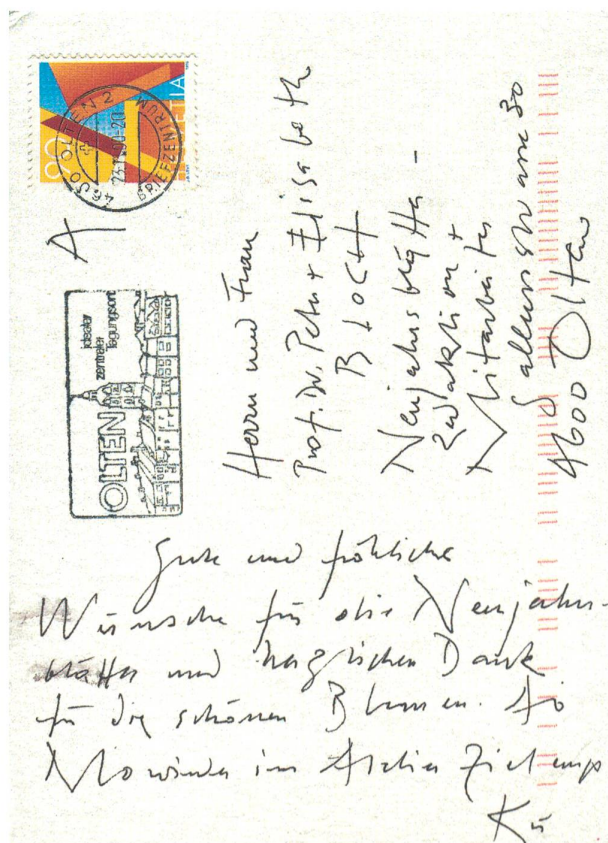 90
HELVETIA
4600 OLTEN 2
BRIEFZENTRUM
A
OLTEN
idealer
zentraler
Tagungsort
Herrn und Frau
Prof. Dr. Peter + Elisabeth
BLOCH
Neujahrsblätter-
redaktion +
Mitarbeiter
30
4600 Olten
Gute und fröhliche
Wünsche für die Neujahrs-
blätter und herzlichen Dank
für die schönen Blumen.
im Atelier